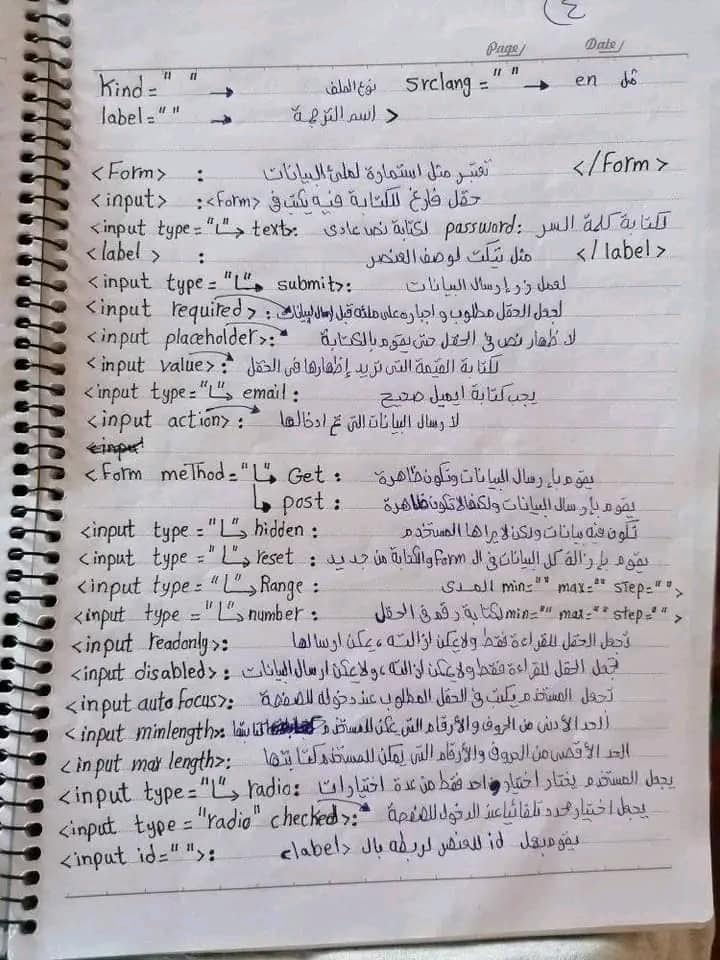 (٤)
Page/ Date/
Kind=" " → نوع الملف srclang=" " → en مثل
label=" " → اسم الترجمة >
<Form> : تعتبر مثل استمارة لملئ البيانات </Form>
<input> : حقل فارغ للكتابة فيه يكتب في <Form>
<input type="L→ text: لكتابة نص عادى password: لكتابة كلمة السر
<label> : مثل تيكت لوصف العنصر </label>
<input type="L"→ submit>: لعمل زر إرسال البيانات
<input required>: لجعل الحقل مطلوب و اجباره على ملئه قبل إرسال البيانات
<input placeholder>: لا ظهار نص في الحقل حتى يقوم بالكتابة
<input value>: لكتابة القيمة التى تريد إظهارها فى الحقل
<input type="L"→ email: يجب كتابة ايميل صحيح
<input action>: لا رسال البيانات التى تم ادخالها
<Form meThod="L"→ Get: يقوم بإرسال البيانات وتكون ظاهرة
↳ post: يقوم بإرسال البيانات ولكن لا تكون ظاهرة
<input type="L"→ hidden: تكون فيه بيانات ولكن لا يراها المستخدم
<input type="L"→ reset: يقوم بإزالة كل البيانات في ال form والكتابة من جديد
<input type="L"→ Range: المدى min="" max="" step="">
<input type="L"→ number: لكتابة رقم فى الحقل min="" max="" step="">
<input readonly>: تجعل الحقل للقراءة فقط ولا يمكن ازالته ، يمكن ارسالها
<input disabled>: تجعل الحقل للقراءة فقط ولا يمكن ازالته ، ولا يمكن ارسال البيانات
<input auto focus>: تجعل المستخدم يكتب في الحقل المطلوب عند دخوله للصفحة
<input minlength>: الحد الأدنى من الحروف والأرقام التى يمكن للمستخدم كتابتها
<input max length>: الحد الأقصى من الحروف والأرقام التى يمكن للمستخدم كتابتها
<input type="L"→ radio: يجعل المستخدم يختار اختيار واحد فقط من عدة اختيارات
<input type="radio" checked>: يجعل اختيار محدد تلقائيا عند الدخول للصفحة
<input id=" ">: يقوم بعمل id للعنصر لربطه بال <label>